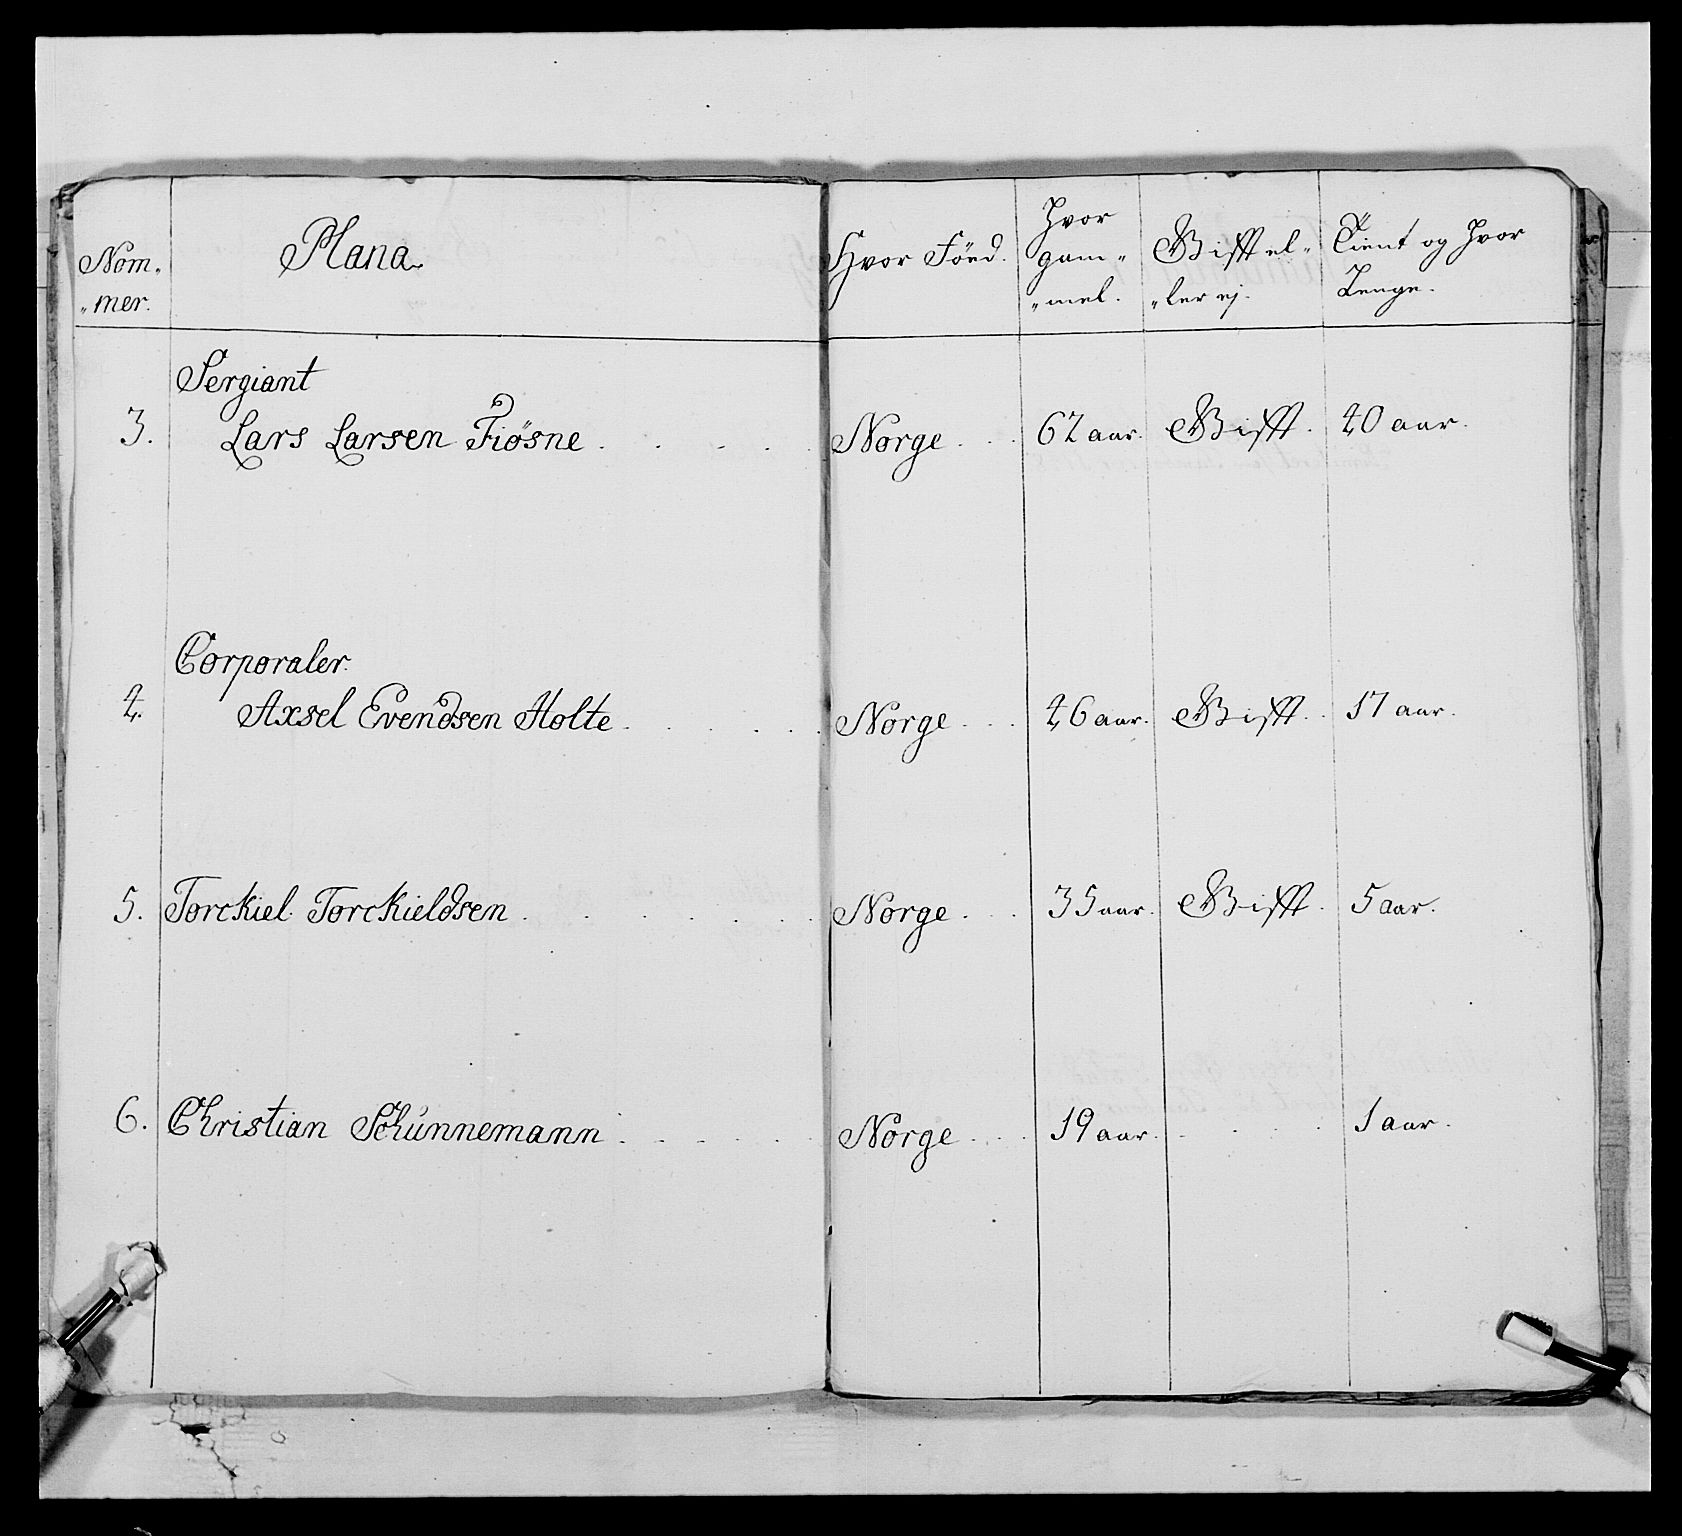 Nom-
-mer.
Plana
Hvor Föed.
Hvor
gam-
-mel.
Gifft el-
-ler ej.
Tient og Hvor
Lenge.
Sergiant
3. Lars Larsen Fiösne Norge 62 aar. Gifft. 40 aar.
Corporaler.
4. Axsel Evendsen Holte Norge 46 aar. Gifft. 17 aar.
5. Torckiel Torckieldsen Norge 35 aar. Gifft. 5 aar.
6. Christian Schünnemann Norge 19 aar. 1 aar.